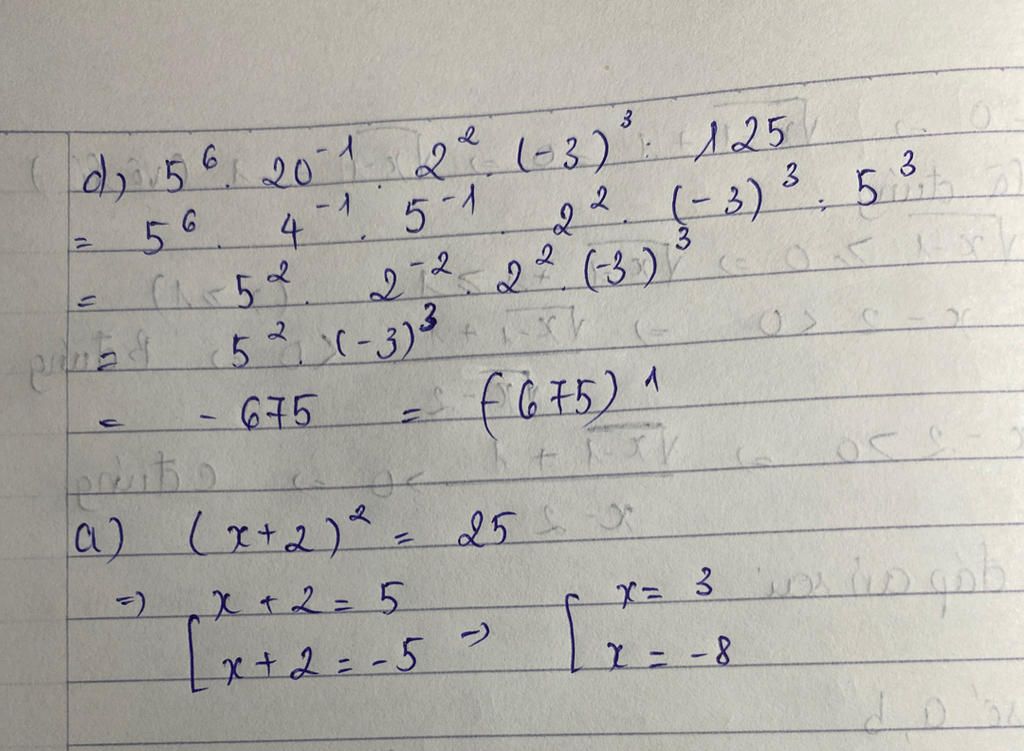 d, 5⁶ . 20⁻¹ . 2² . (-3)³ : 125
= 5⁶ . 4⁻¹ . 5⁻¹ . 2² . (-3)³ : 5³
= 5² . 2⁻² . 2² . (-3)³
= 5² . (-3)³
= - 675 = (-675)¹
a) (x+2)² = 25
=> [ x + 2 = 5 [ x = 3
x + 2 = -5 => x = -8